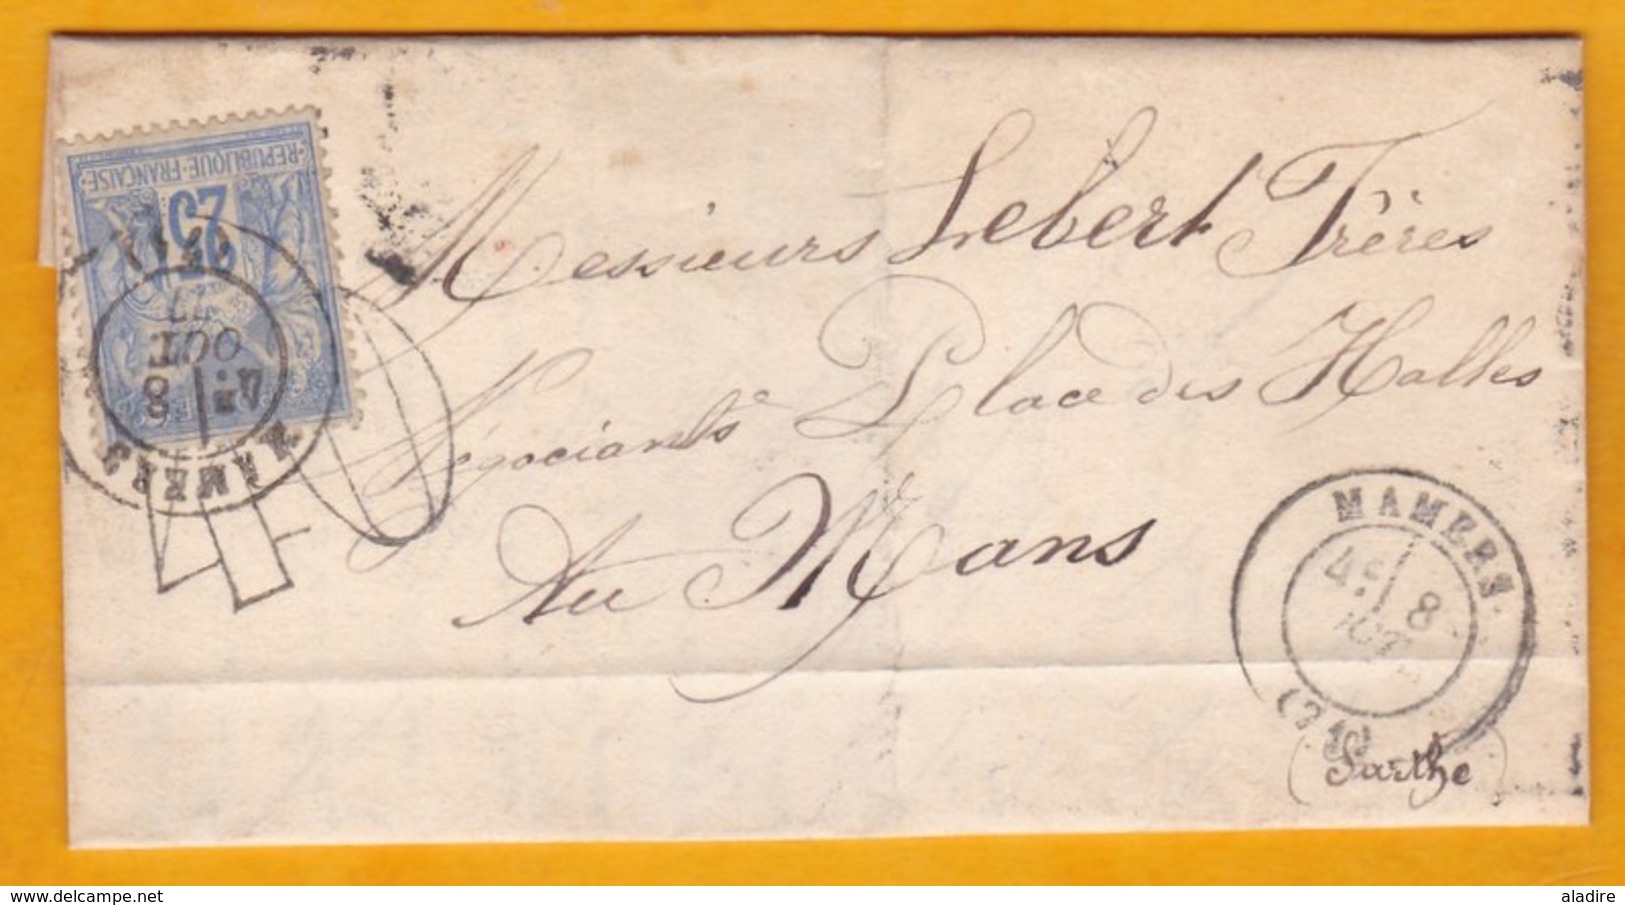 REPUBLIQUE·FRANÇAISE
25
MAMERS
4E
8
OCT
77
40
Messieurs Lebert Frères
Négociants Place des Halles
Au Mans
(Sarthe)
MAMERS
4E
8
OCT
(71)
delcampe.net
aladire